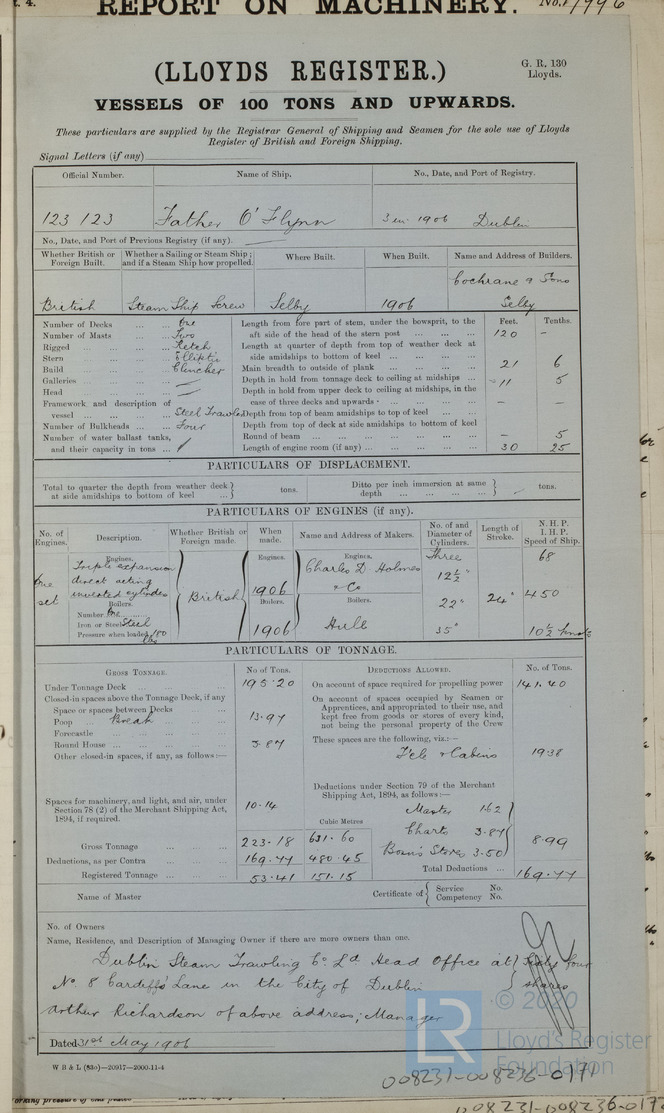 REPORT ON MACHINERY.
(LLOYDS REGISTER.)
G. R. 130
Lloyds.
VESSELS OF 100 TONS AND UPWARDS.
These particulars are supplied by the Registrar General of Shipping and Seamen for the sole use of Lloyds
Register of British and Foreign Shipping.
Signal Letters (if any)
Official Number. Name of Ship. No., Date, and Port of Registry.
123 123 Father O'Flynn 3 in 1906 Dublin
No., Date, and Port of Previous Registry (if any).
Whether British or Foreign Built. Whether a Sailing or Steam Ship; and if a Steam Ship how propelled. Where Built. When Built. Name and Address of Builders.
British Steam Ship Screw Selby 1906 Cochrane & Sons Selby
Number of Decks One
Number of Masts Two
Rigged Ketch
Stern Elliptic
Build Clencher
Galleries
Head
Framework and description of vessel Steel Trawler
Number of Bulkheads Four
Number of water ballast tanks, and their capacity in tons
Feet. Tenths.
Length from fore part of stem, under the bowsprit, to the aft side of the head of the stern post 120 -
Length at quarter of depth from top of weather deck at side amidships to bottom of keel
Main breadth to outside of plank 21 6
Depth in hold from tonnage deck to ceiling at midships 11 5
Depth in hold from upper deck to ceiling at midships, in the case of three decks and upwards - -
Depth from top of beam amidships to top of keel
Depth from top of deck at side amidships to bottom of keel
Round of beam - 5
Length of engine room (if any) 30 25
PARTICULARS OF DISPLACEMENT.
Total to quarter the depth from weather deck at side amidships to bottom of keel tons.
Ditto per inch immersion at same depth tons.
PARTICULARS OF ENGINES (if any).
No. of Engines. Description. Whether British or Foreign made. When made. Name and Address of Makers. No. of and Diameter of Cylinders. Length of Stroke. N. H. P. I. H. P. Speed of Ship.
One set
Engines.
Triple expansion
direct acting
inverted cylinder
Boilers.
Number One
Iron or Steel Steel
Pressure when loaded 180 lbs
British
Engines.
1906
Boilers.
1906
Engines.
Charles D Holmes
& Co
Boilers.
Hull
Three
12½"
22"
35"
24"
68
450
10½ knots
PARTICULARS OF TONNAGE.
GROSS TONNAGE. No of Tons.
Under Tonnage Deck 195.20
Closed-in spaces above the Tonnage Deck, if any
Space or spaces between Decks
Poop Break 13.97
Forecastle
Round House 3.87
Other closed-in spaces, if any, as follows:—
Spaces for machinery, and light, and air, under Section 78 (2) of the Merchant Shipping Act, 1894, if required. 10.14
Cubic Metres
Gross Tonnage 223.18 631.60
Deductions, as per Contra 169.77 480.45
Registered Tonnage 53.41 151.15
DEDUCTIONS ALLOWED. No. of Tons.
On account of space required for propelling power 141.40
On account of spaces occupied by Seamen or Apprentices, and appropriated to their use, and kept free from goods or stores of every kind, not being the personal property of the Crew
These spaces are the following, viz.:—
F'cle & Cabins 19.38
Deductions under Section 79 of the Merchant Shipping Act, 1894, as follows:—
Master 1.62
Charts 3.87
Boan's Stores 3.50
8.99
Total Deductions 169.77
Name of Master
Certificate of Service No.
Competency No.
No. of Owners
Name, Residence, and Description of Managing Owner if there are more owners than one.
Dublin Steam Trawling Co. Ld Head Office at
No. 8 Cardiff's Lane in the City of Dublin
Sixty four shares
Arthur Richardson of above address; Manager
Dated 31st May 1906
W B & L (83o)—20917—2000.11-4
LR © 2020
Lloyd's Register
Foundation
008231-008236-0171